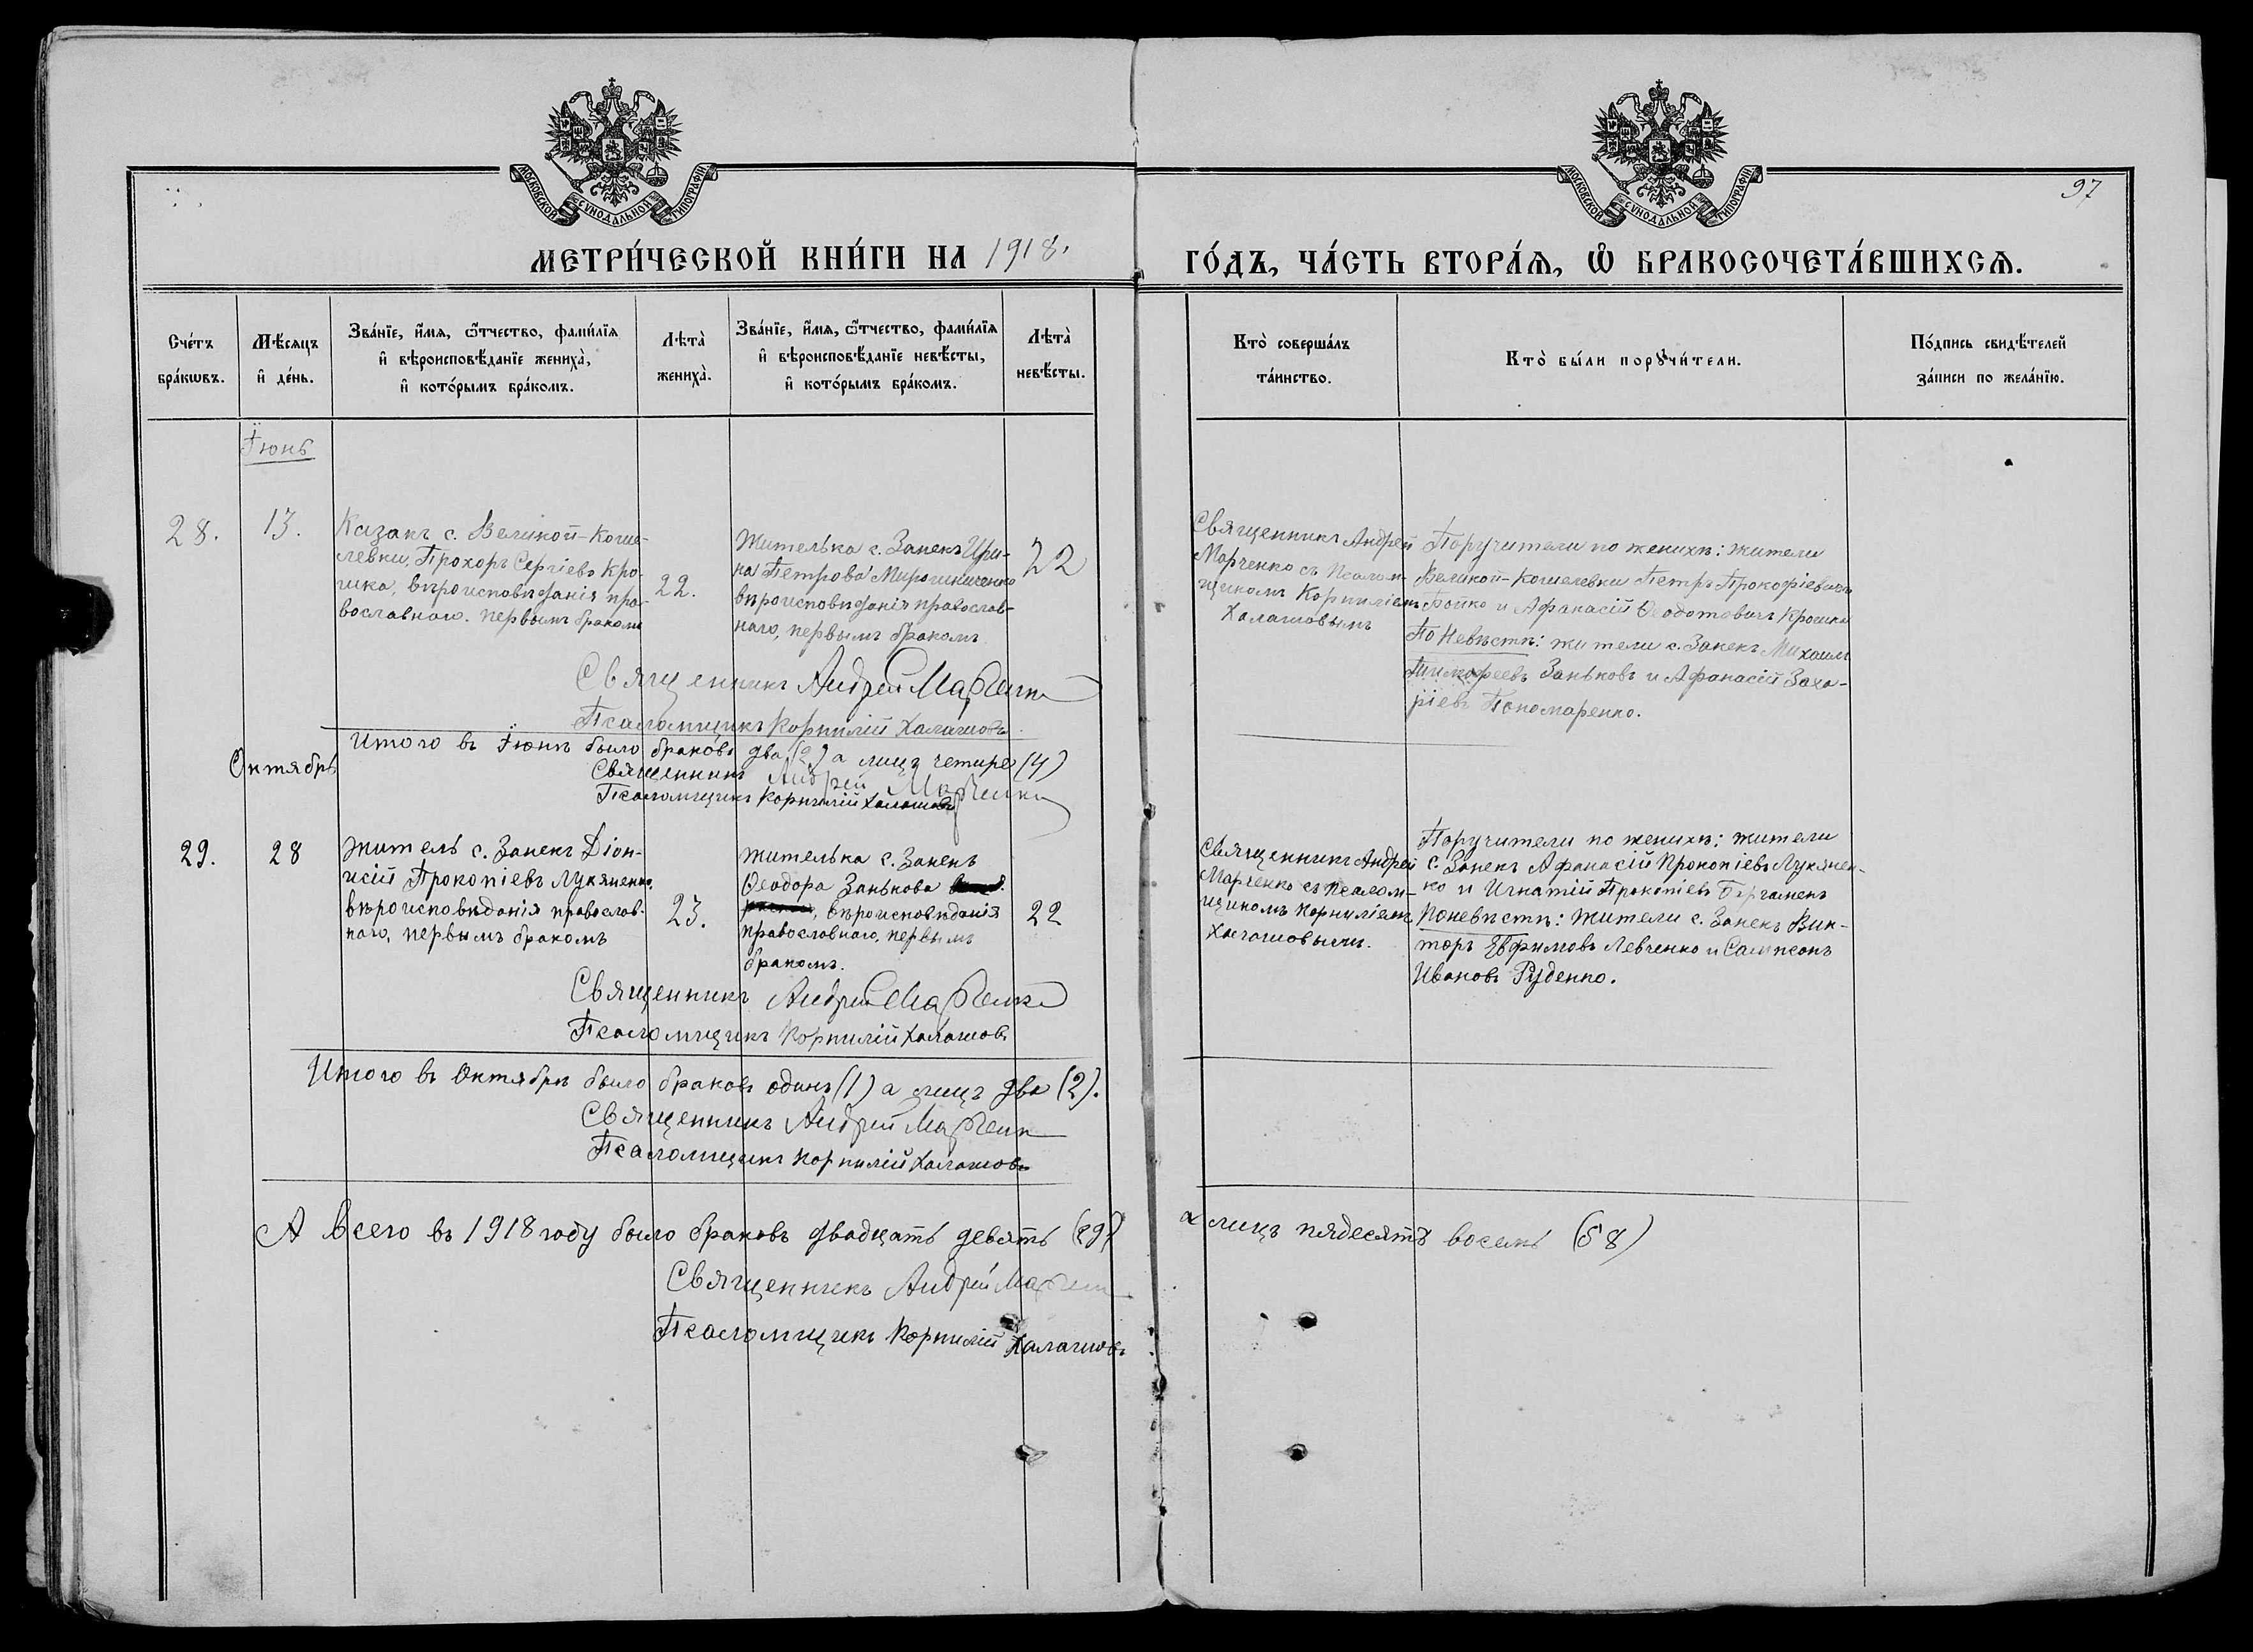 МОСКОВСКОЙ СУНОДАЛЬНОЙ ТИПОГРАФІИ
МОСКОВСКОЙ СУНОДАЛЬНОЙ ТИПОГРАФІИ
97
МЕТРИ́ЧЕСКОЙ КНИ́ГИ НА 1918. ГО́ДЪ, ЧА́СТЬ ВТОРА́Ѧ, Ѡ҆ БРАКОСОЧЕТА́ВШИХСѦ.
Сче́тъ бра́кѡвъ.
Мѣ́сяцъ и҆ де́нь.
Зва́нїе, и҆́мѧ, ѻ҆́тчество, фами́лїѧ
и҆ вѣроисповѣ́данїе жениха̀,
и҆ кото́рымъ бра́комъ.
Лѣта̀ жениха̀.
Зва́нїе, и҆́мѧ, ѻ҆́тчество, фами́лїѧ
и҆ вѣроисповѣ́данїе невѣ́сты,
и҆ кото́рымъ бра́комъ.
Лѣта̀ невѣ́сты.
Кто̀ соверша́лъ та́инство.
Кто̀ бы́ли порꙋчи́тели.
По́дпись свидѣ́телей
за́писи по жела́нїю.
Іюнь
28.
13.
Казакъ с. Великой-Коше-
левки, Прохоръ Сергіевъ Кро-
шка, вѣроисповѣданія пра-
вославнаго. первымъ бракомъ
22.
Жителька с. Занекъ Ири-
на Петрова Мирошниченко
вѣроисповѣданія православ-
наго, первымъ бракомъ
22
Священникъ Андрей
Марченко съ Псалом-
щикомъ Корниліемъ
Халатовымъ
Поручители по женихѣ: жители
Великой-Кошелевки Петръ Прокофіевичъ
Бойко и Афанасій Ѳеодотовичъ Крошка
По Невѣстѣ: жители с. Занекъ Михаилъ
Тимофеевъ Заньковъ и Афанасій Заха-
ріевъ Пономаренко.
Священникъ Андрей Марченко
Псаломщикъ Корнилій Халатовъ
Итого въ Іюнѣ было браковъ два (2) а лицъ четыре (4)
Священникъ Андрей Марченко
Псаломщикъ Корнилій Халатовъ
Октябрь
29.
28
Житель с. Занекъ Діон-
исій Прокопіевъ Лукяненко,
вѣроисповѣданія православ-
наго, первымъ бракомъ
23.
Жителька с. Занекъ
Ѳеодора Занькова
, вѣроисповѣданія
православнаго, первымъ
бракомъ.
22
Священникъ Андрей
Марченко съ Псалом-
щикомъ Корниліемъ
Халатовымъ.
Поручители по женихѣ: жители
с. Занекъ Афанасій Прокопіевъ Лукянен-
ко и Игнатій Прокопіевъ
По невѣстѣ: жители с. Занекъ Вик-
торъ Евфимовъ Левченко и Сампсонъ
Ивановъ Руденко.
Священникъ Андрей Марченко
Псаломщикъ Корнилій Халатовъ
Итого въ Октябрѣ было браковъ одинъ (1) а лицъ два (2).
Священникъ Андрей Марченко
Псаломщикъ Корнилій Халатовъ
А всего въ 1918 году было браковъ двадцать девять (29) а лицъ пядесятъ восемь (58)
Священникъ Андрей Марченко
Псаломщикъ Корнилій Халатовъ